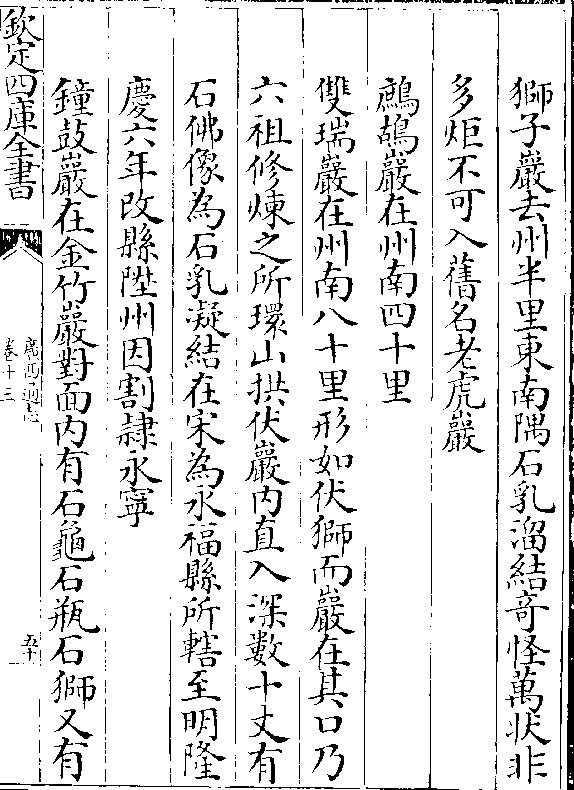 獅子巖去州半里東南隅石乳溜結奇怪萬狀非
多炬不可入舊名老虎巖
鷓鴣巖在州南四十里
雙瑞巖在州南八十里形如伏獅而巖在其口乃
六祖修煉之所環山拱伏巖内直入深數十丈有
石佛像為石乳凝結在宋為永福縣所轄至明隆
慶六年改縣陞州因割隷永寧
鐘鼓巖在金竹巖對面内有石龜石瓶石獅又有
欽定四庫全書
廣西通志
卷十三
五十